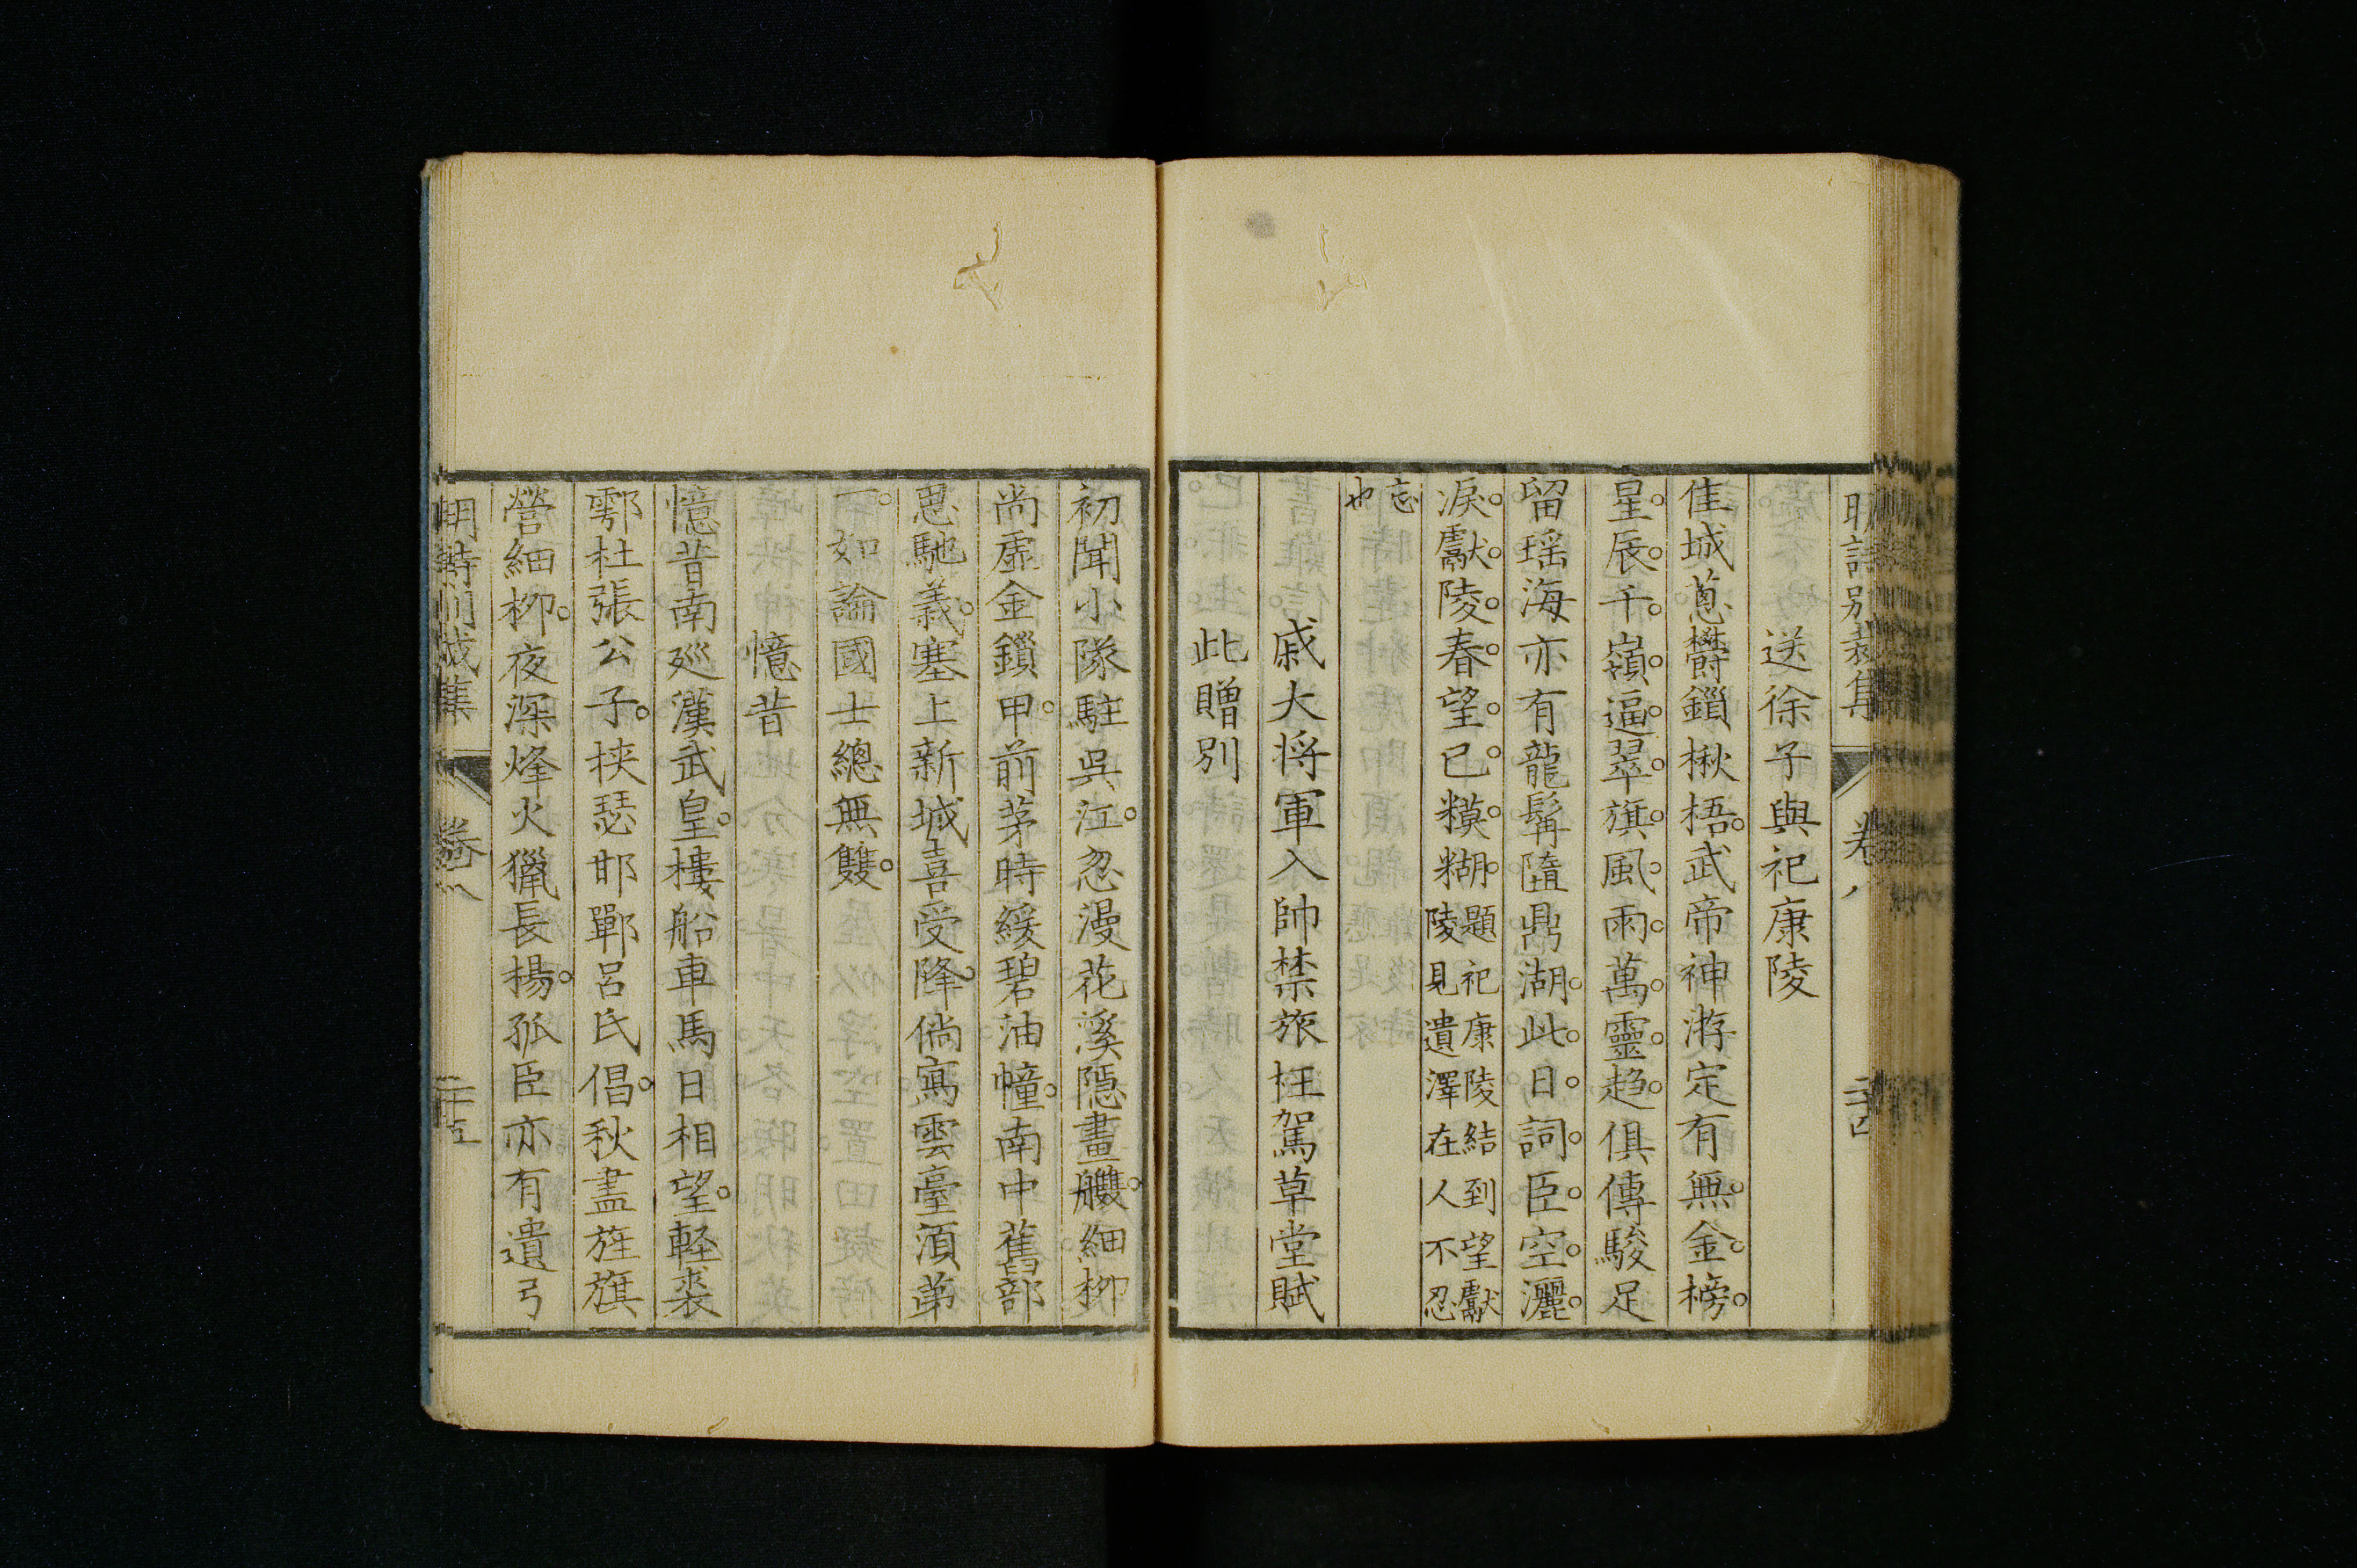 明詩別裁集 卷八 二十四
送徐子與祀康陵
佳城蔥欝鎻楸梧武帝神游定有無金榜
星辰千嶺逼翠旗風雨萬靈趋俱傳駿足
留瑶海亦有龍髯墮鼎湖此日詞臣空灑
淚獻陵春望已糢糊題祀康陵結到望獻
陵見遺澤在人不忍
忘
也
戚大将軍入帥禁旅枉駕草堂賦
此贈別
初聞小隊駐吳江忽漫花溪隱畫艭細柳
尚虛金鎻甲前茅時緩碧油幢南中舊部
思馳義塞上新城喜受降倘寫雲臺湏苐
一如論國士緫無雙
憶昔
憶昔南廵漢武皇樓船車馬日相望軽裘
鄠杜張公子挟瑟邯鄲呂氏倡秋盡旌旗
營細柳夜深烽火獵長楊孤臣亦有遺弓
明詩別裁集 卷八 二十五